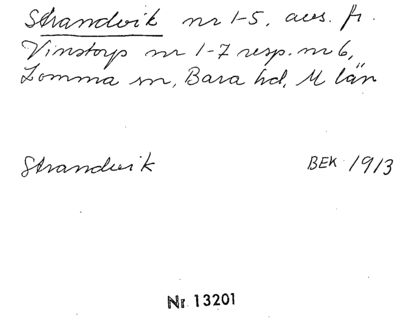 Strandvik nr 1-5, avs. fr.
Vinstorp nr 1-7 resp. nr 6,
Lomma sn, Bara hd, M län
Strandvik BEK 1913
Nr 13201